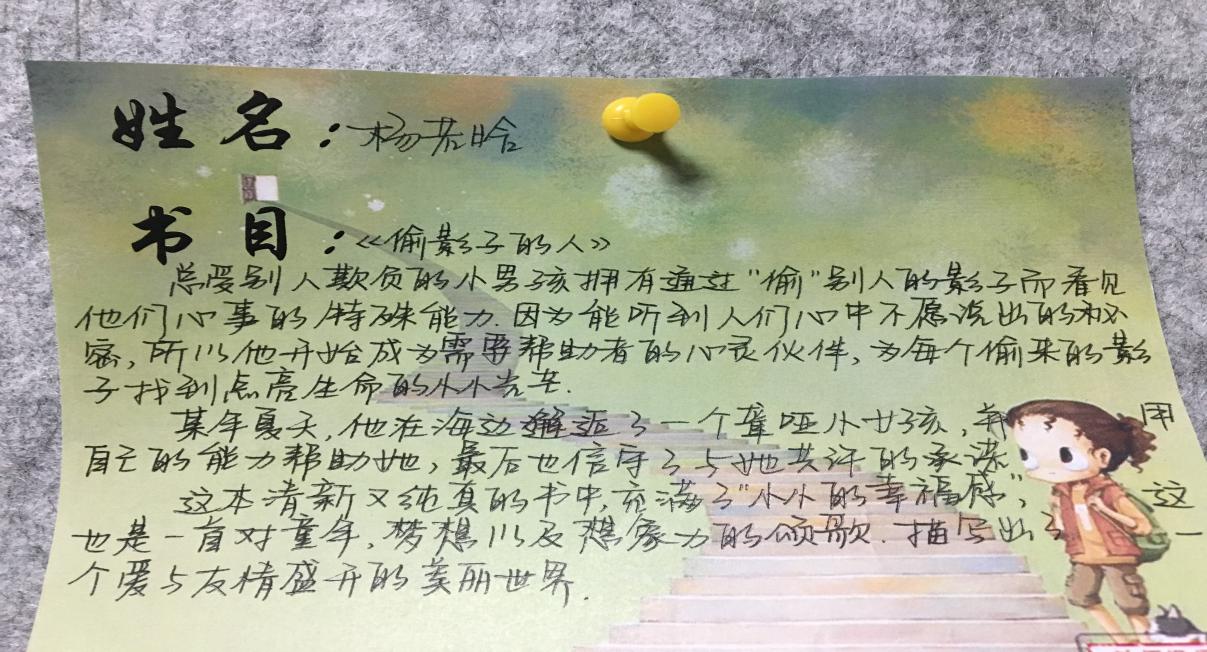 姓名：杨若晗
书目：《偷影子的人》
总受别人欺负的小男孩拥有通过“偷”别人的影子而看见
他们心事的特殊能力.因为能听到人们心中不愿说出的秘
密,所以他开始成为需要帮助者的心灵伙伴,为每个偷来的影
子找到点亮生命的小小光芒.
某年夏天,他在海边邂逅了一个聋哑小女孩,并用
自己的能力帮助她,最后也信守了与她共许的承诺.
这本清新又纯真的书中,充满了“小小的幸福感”,这
也是一首对童年,梦想以及想象力的颂歌.描写出了一
个爱与友情盛开的美丽世界.